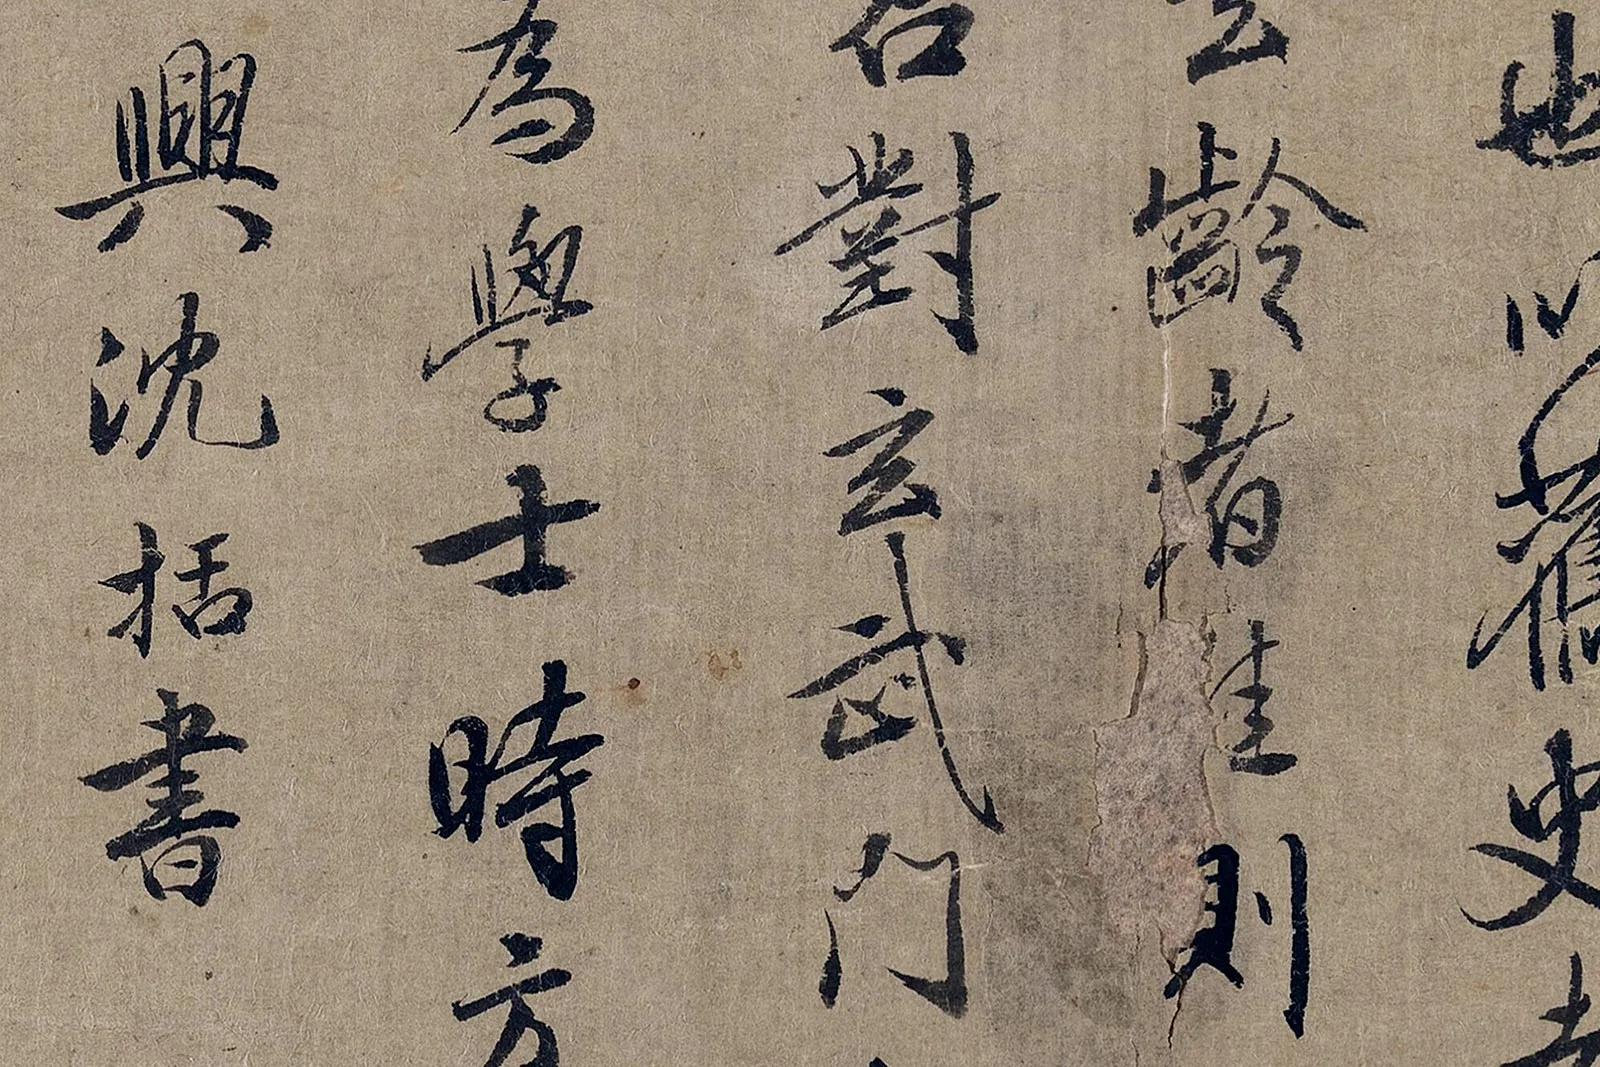 也以舊史
玄齡者則
召對玄武門
為學士時方
興沈括書